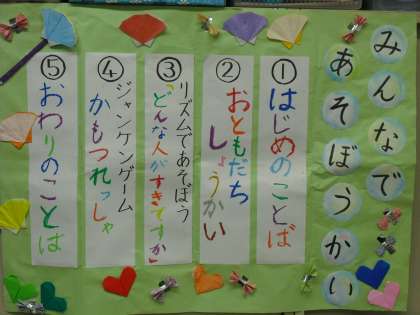 みんなで
あそぼうかい
①はじめのことば
②おともだち
しょうかい
③リズムであそぼう
「どんな人がすきですか」
④ジャンケンゲーム
かもつれっしゃ
⑤おわりのことば